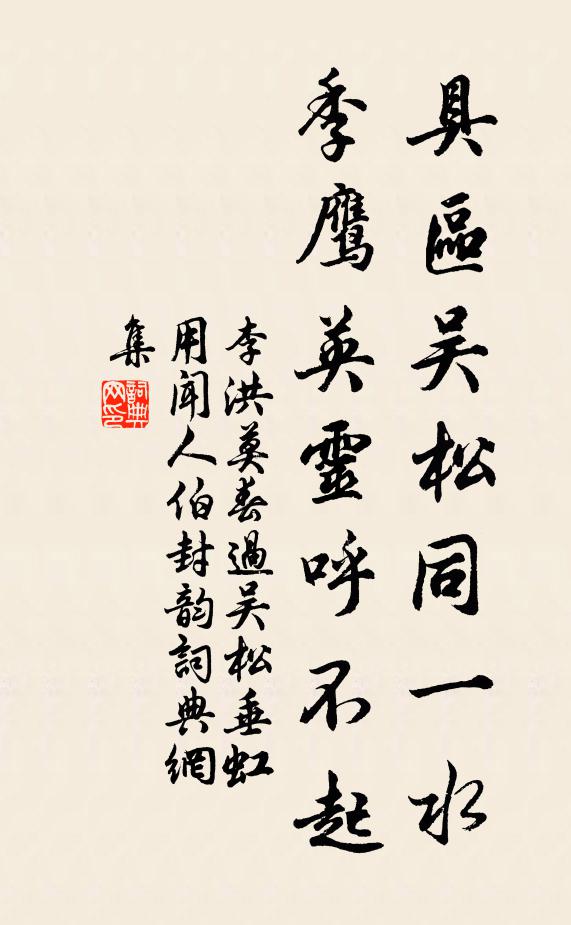 具區吴松同一水
季鹰英靈呼不起
李洪莫春過吴松垂虹
用聞人伯封韵詞典網
集
詞典
网印